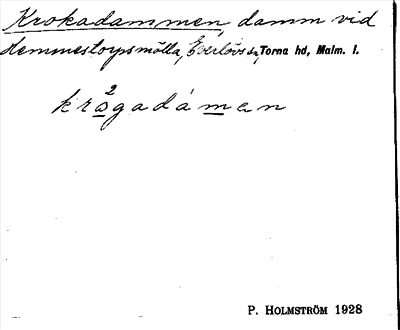 Krokadammen, damm vid
Hemmestorpsmölla, Everlövs sn, Torna hd, Malm. l.
2
krågadámen
P. HOLMSTRÖM 1928